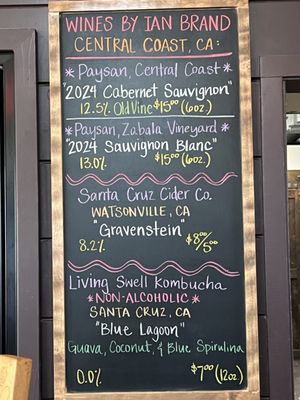 WINES BY IAN BRAND
CENTRAL COAST, CA:
*Paysan, Central Coast*
"2024 Cabernet Sauvignon"
12.5% Old Vine $15⁰⁰ (6oz.)
*Paysan, Zabala Vineyard*
"2024 Sauvignon Blanc"
13.0% $15⁰⁰ (6oz.)
Santa Cruz Cider Co.
WATSONVILLE, CA
"Gravenstein"
8.2% $8⁰⁰/5⁰⁰
Living Swell Kombucha
*NON-ALCOHOLIC*
SANTA CRUZ, CA
"Blue Lagoon"
Guava, Coconut, & Blue Spirulina
0.0% $7⁰⁰ (12oz)